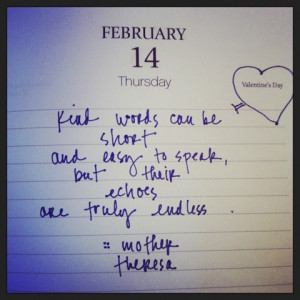 FEBRUARY
14
Thursday
Valentine's Day
Kind words can be
short
and easy to speak,
but their
echoes
are truly endless.
= mother
theresa